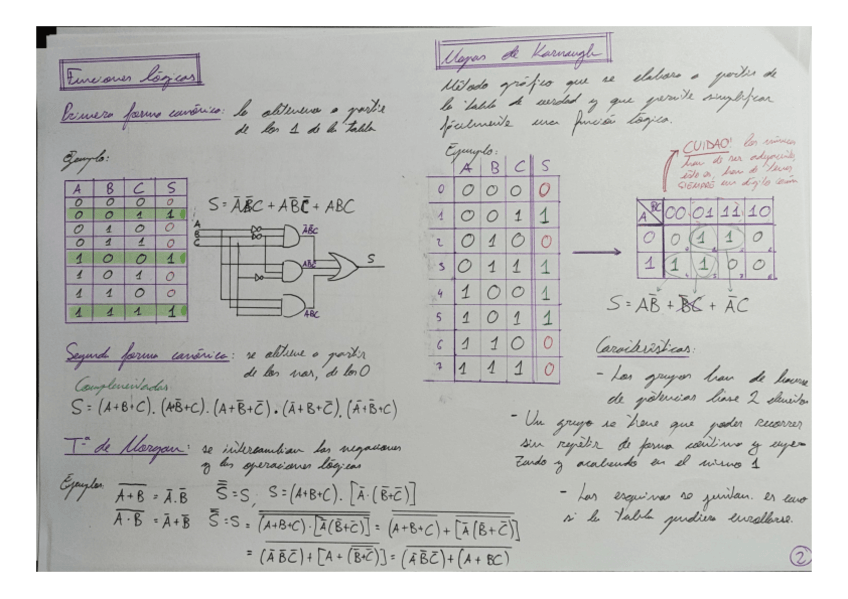 Funciones lógicas
Primera forma canónica: lo obtienen a partir
de los 1 de la tabla
Ejemplo:
A B C S
0 0 0 0
0 0 1 1
0 1 0 0
0 1 1 0
1 0 0 1
1 0 1 0
1 1 0 0
1 1 1 1
S = ĀB̄C + AB̄C̄ + ABC
A
B
C
ĀB̄C
AB̄C̄
ABC
S
Segunda forma canónica: se obtiene a partir
de los 0
Complementadas
S = (A+B+C) . (A+B̄+C) . (A+B̄+C̄) . (Ā+B+C̄) . (Ā+B̄+C)
Tª de Morgan: se intercambian las negaciones
y las operaciones lógicas
Ejemplos
A̅+̅B̅ = Ā.B̄ S̿ = S, S = (A+B+C) . [Ā . (B̄+C̄)]
A̅·̅B̅ = Ā+B̄ S̿ = S = (A+B+C) . [Ā(B̄+C̄)] = (A+B+C) + [Ā(B̄+C̄)]
= (Ā B̄ C̄) + [A + (B̄+C̄)] = (Ā B̄ C̄) + (A + BC)
Mapas de Karnaugh
Método gráfico que se elabora a partir de
la tabla de verdad y que permite simplificar
fácilmente una función lógica.
Ejemplo:
A B C S
0 0 0 0 0
1 0 0 1 1
2 0 1 0 0
3 0 1 1 1
4 1 0 0 1
5 1 0 1 1
6 1 1 0 0
7 1 1 1 0
CUIDAO! los números
han de ser adyacentes
esto es, han de tener
SIEMPRE un dígito común
A BC 00 01 11 10
0 0 1 1 0
1 1 1 0 0
S = AB̄ + B̄C + ĀC
Características:
- Los grupos han de hacerse
de potencias base 2 elementos
- Un grupo se tiene que poder recorrer
sin repetir de forma continua y empe
zando y acabando en el mismo 1
- Las esquinas se juntan. es como
si la tabla pudiera enrollarse.
2